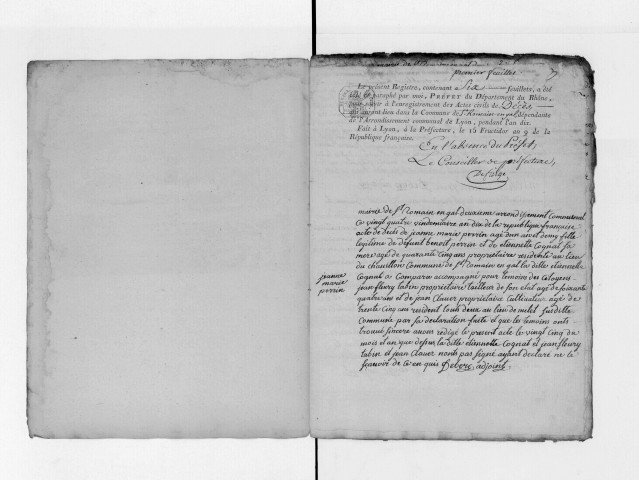 premier feuillet
Le présent Registre, contenant Six feuillets, a été
paraphé par moi, PRÉFET du Département du Rhône,
pour servir à l'enregistrement des Actes civils de Décès
qui auront lieu dans la Commune de St Romain en gal dépendante
de l'Arrondissement communal de Lyon, pendant l'an dix.
Fait à Lyon, à la Préfecture, le 15 Fructidor an 9 de la
République française.
En l'absence du Préfet,
Le Conseiller de préfecture,
mairie de St Romain en gal deuxieme arrondissement Communal
Ce vingt quatre vindemiaire an dix de la republique française
acte de deces de jeanne marie perrin agé d'un an et demy fille
legitime de defunt benoit perrin et de etiennette Cognat sa
mere agé de quarante cinq ans proprietaire residente au lieu
du chauillon Commune de St Romain en gal la ditte etiennette
Cognat a Comparu accompagné pour temoins des Citoyens
jean fleury tabin proprietaire tailleur de son etat agé de soixante
quatre ans et de jean Clauer proprietaire Cultivateur agé de
trente Cinq ans resident tous deux au lieu de susditte
Commune par sa declaration faite et que les temoins ont
trouué sincere auons redigé le present acte le vingt Cinq du
mois et an que dessus la ditte etiennette Cognat et jean fleury
tabin et jean Clauer n'ont pas signé ayant declaré ne le
sçauoir de ce en quis adjoint
jeanne
marie
perrin